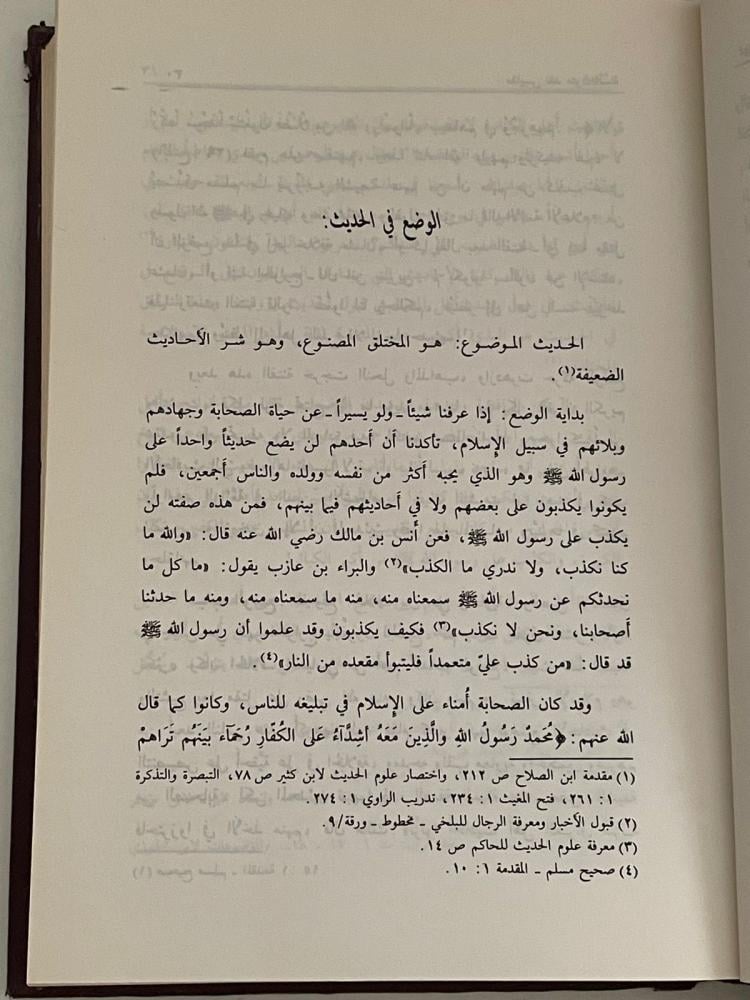 الوضع في الحديث:
الحديث الموضوع: هو المختلق المصنوع، وهو شر الأحاديث
الضعيفة(١).
بداية الوضع: إذا عرفنا شيئاً ـ ولو يسيراً ـ عن حياة الصحابة وجهادهم
وبلائهم في سبيل الإسلام، تأكدنا أن أحدهم لن يضع حديثاً واحداً على
رسول الله ﷺ وهو الذي يحبه أكثر من نفسه وولده والناس أجمعين، فلم
يكونوا يكذبون على بعضهم ولا في أحاديثهم فيما بينهم، فمن هذه صفته لن
يكذب على رسول الله ﷺ، فعن أنس بن مالك رضي الله عنه قال: «والله ما
كنا نكذب، ولا ندري ما الكذب»(٢) والبراء بن عازب يقول: «ما كل ما
نحدثكم عن رسول الله ﷺ سمعناه منه، منه ما سمعناه منه، ومنه ما حدثنا
أصحابنا، ونحن لا نكذب»(٣) فكيف يكذبون وقد علموا أن رسول الله ﷺ
قد قال: «من كذب عليّ متعمداً فليتبوأ مقعده من النار»(٤).
وقد كان الصحابة أُمناء على الإسلام في تبليغه للناس، وكانوا كما قال
الله عنهم: ﴿مُحَمدٌ رَسُولُ اللهِ والَّذِينَ مَعَهُ أشِدَّآءُ عَلى الكُفّارِ رُحَمَآء بَيْنَهُم تَرَاهمْ
(١) مقدمة ابن الصلاح ص ٢١٢، واختصار علوم الحديث لابن كثير ص ٧٨، التبصرة والتذكرة
١ : ٢٦١، فتح المغيث ١ : ٢٣٤، تدريب الراوي ١ : ٢٧٤.
(٢) قبول الأخبار ومعرفة الرجال للبلخي ـ مخطوط ـ ورقة/٩.
(٣) معرفة علوم الحديث للحاكم ص ١٤.
(٤) صحيح مسلم ـ المقدمة ١ : ١٠.